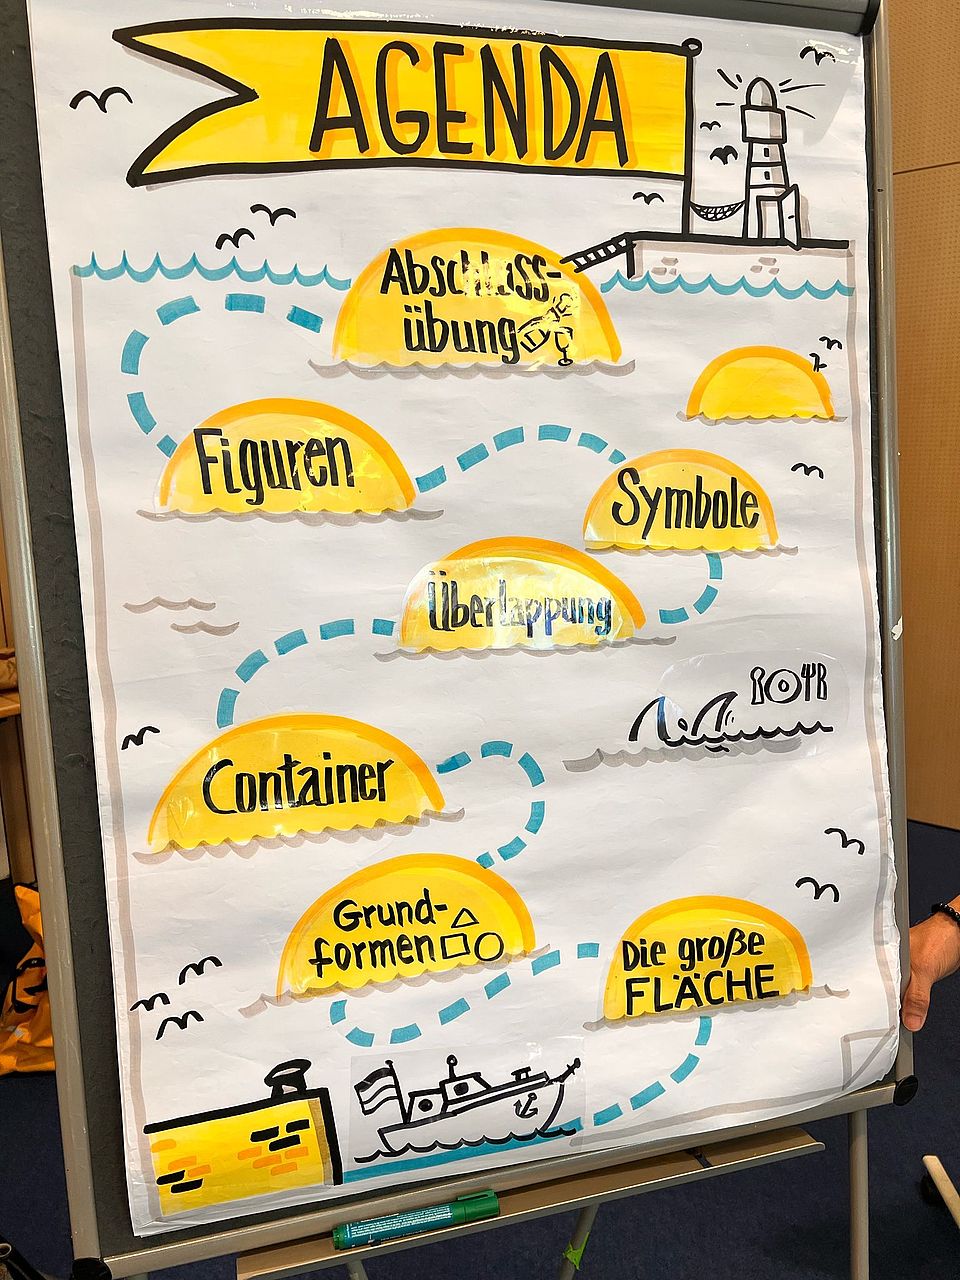 AGENDA
Abschluss-
übung
Figuren
Symbole
Überlappung
Container
Grund-
formen
Die große
FLÄCHE